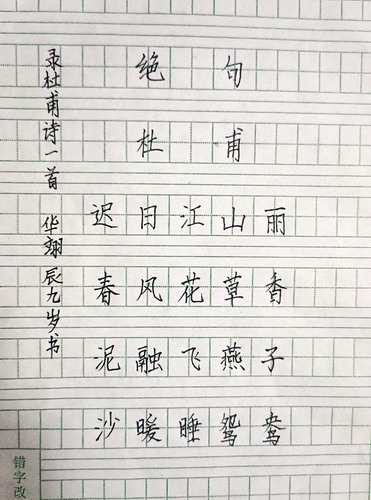 绝句
杜甫
迟日江山丽
春风花草香
泥融飞燕子
沙暖睡鸳鸯
录杜甫诗一首 华翊辰九岁书
错字改